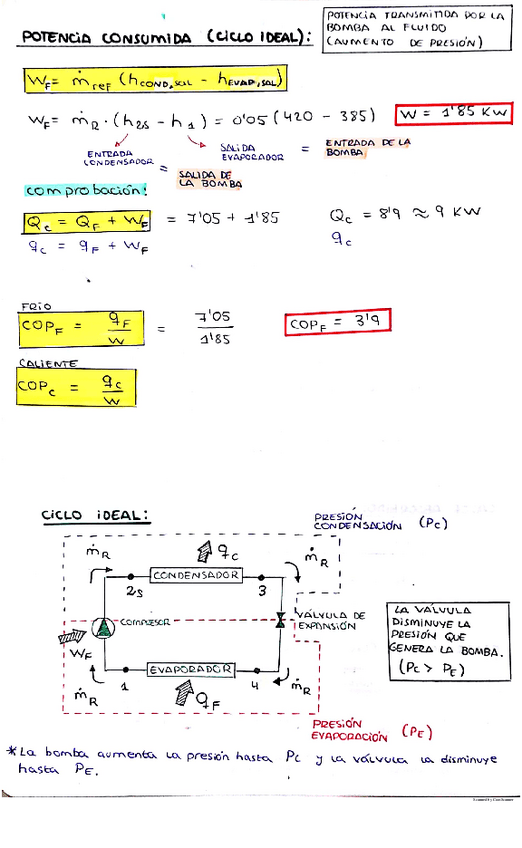 POTENCIA CONSUMIDA (CICLO IDEAL):
POTENCIA TRANSMITIDA POR LA
BOMBA AL FLUIDO
(AUMENTO DE PRESIÓN)
W_F = ṁ_ref (h_COND,SAL - h_EVAP,SAL)
W_F = ṁ_R · (h_2S - h_1) = 0'05 (420 - 385)
W = 1'85 KW
ENTRADA
CONDENSADOR
=
SALIDA DE
LA BOMBA
SALIDA
EVAPORADOR
=
ENTRADA DE LA
BOMBA
comprobación:
Q_c = Q_F + W_F = 7'05 + 1'85
Q_c = 8'9 ≈ 9 KW
q_c = q_F + W_F
q_c
FRIO
COP_F = q_F / W = 7'05 / 1'85
COP_F = 3'9
CALIENTE
COP_c = q_c / W
CICLO IDEAL:
PRESIÓN
CONDENSACIÓN (P_C)
ṁ_R
q_C
ṁ_R
CONDENSADOR
2s
3
COMPRESOR
VÁLVULA DE
EXPANSIÓN
W_F
EVAPORADOR
1
4
ṁ_R
q_F
ṁ_R
LA VÁLVULA
DISMINUYE LA
PRESIÓN QUE
GENERA LA BOMBA.
(P_C > P_E)
PRESIÓN
EVAPORACIÓN (P_E)
*La bomba aumenta la presión hasta P_C y la válvula la disminuye
hasta P_E.
Scanned by CamScanner